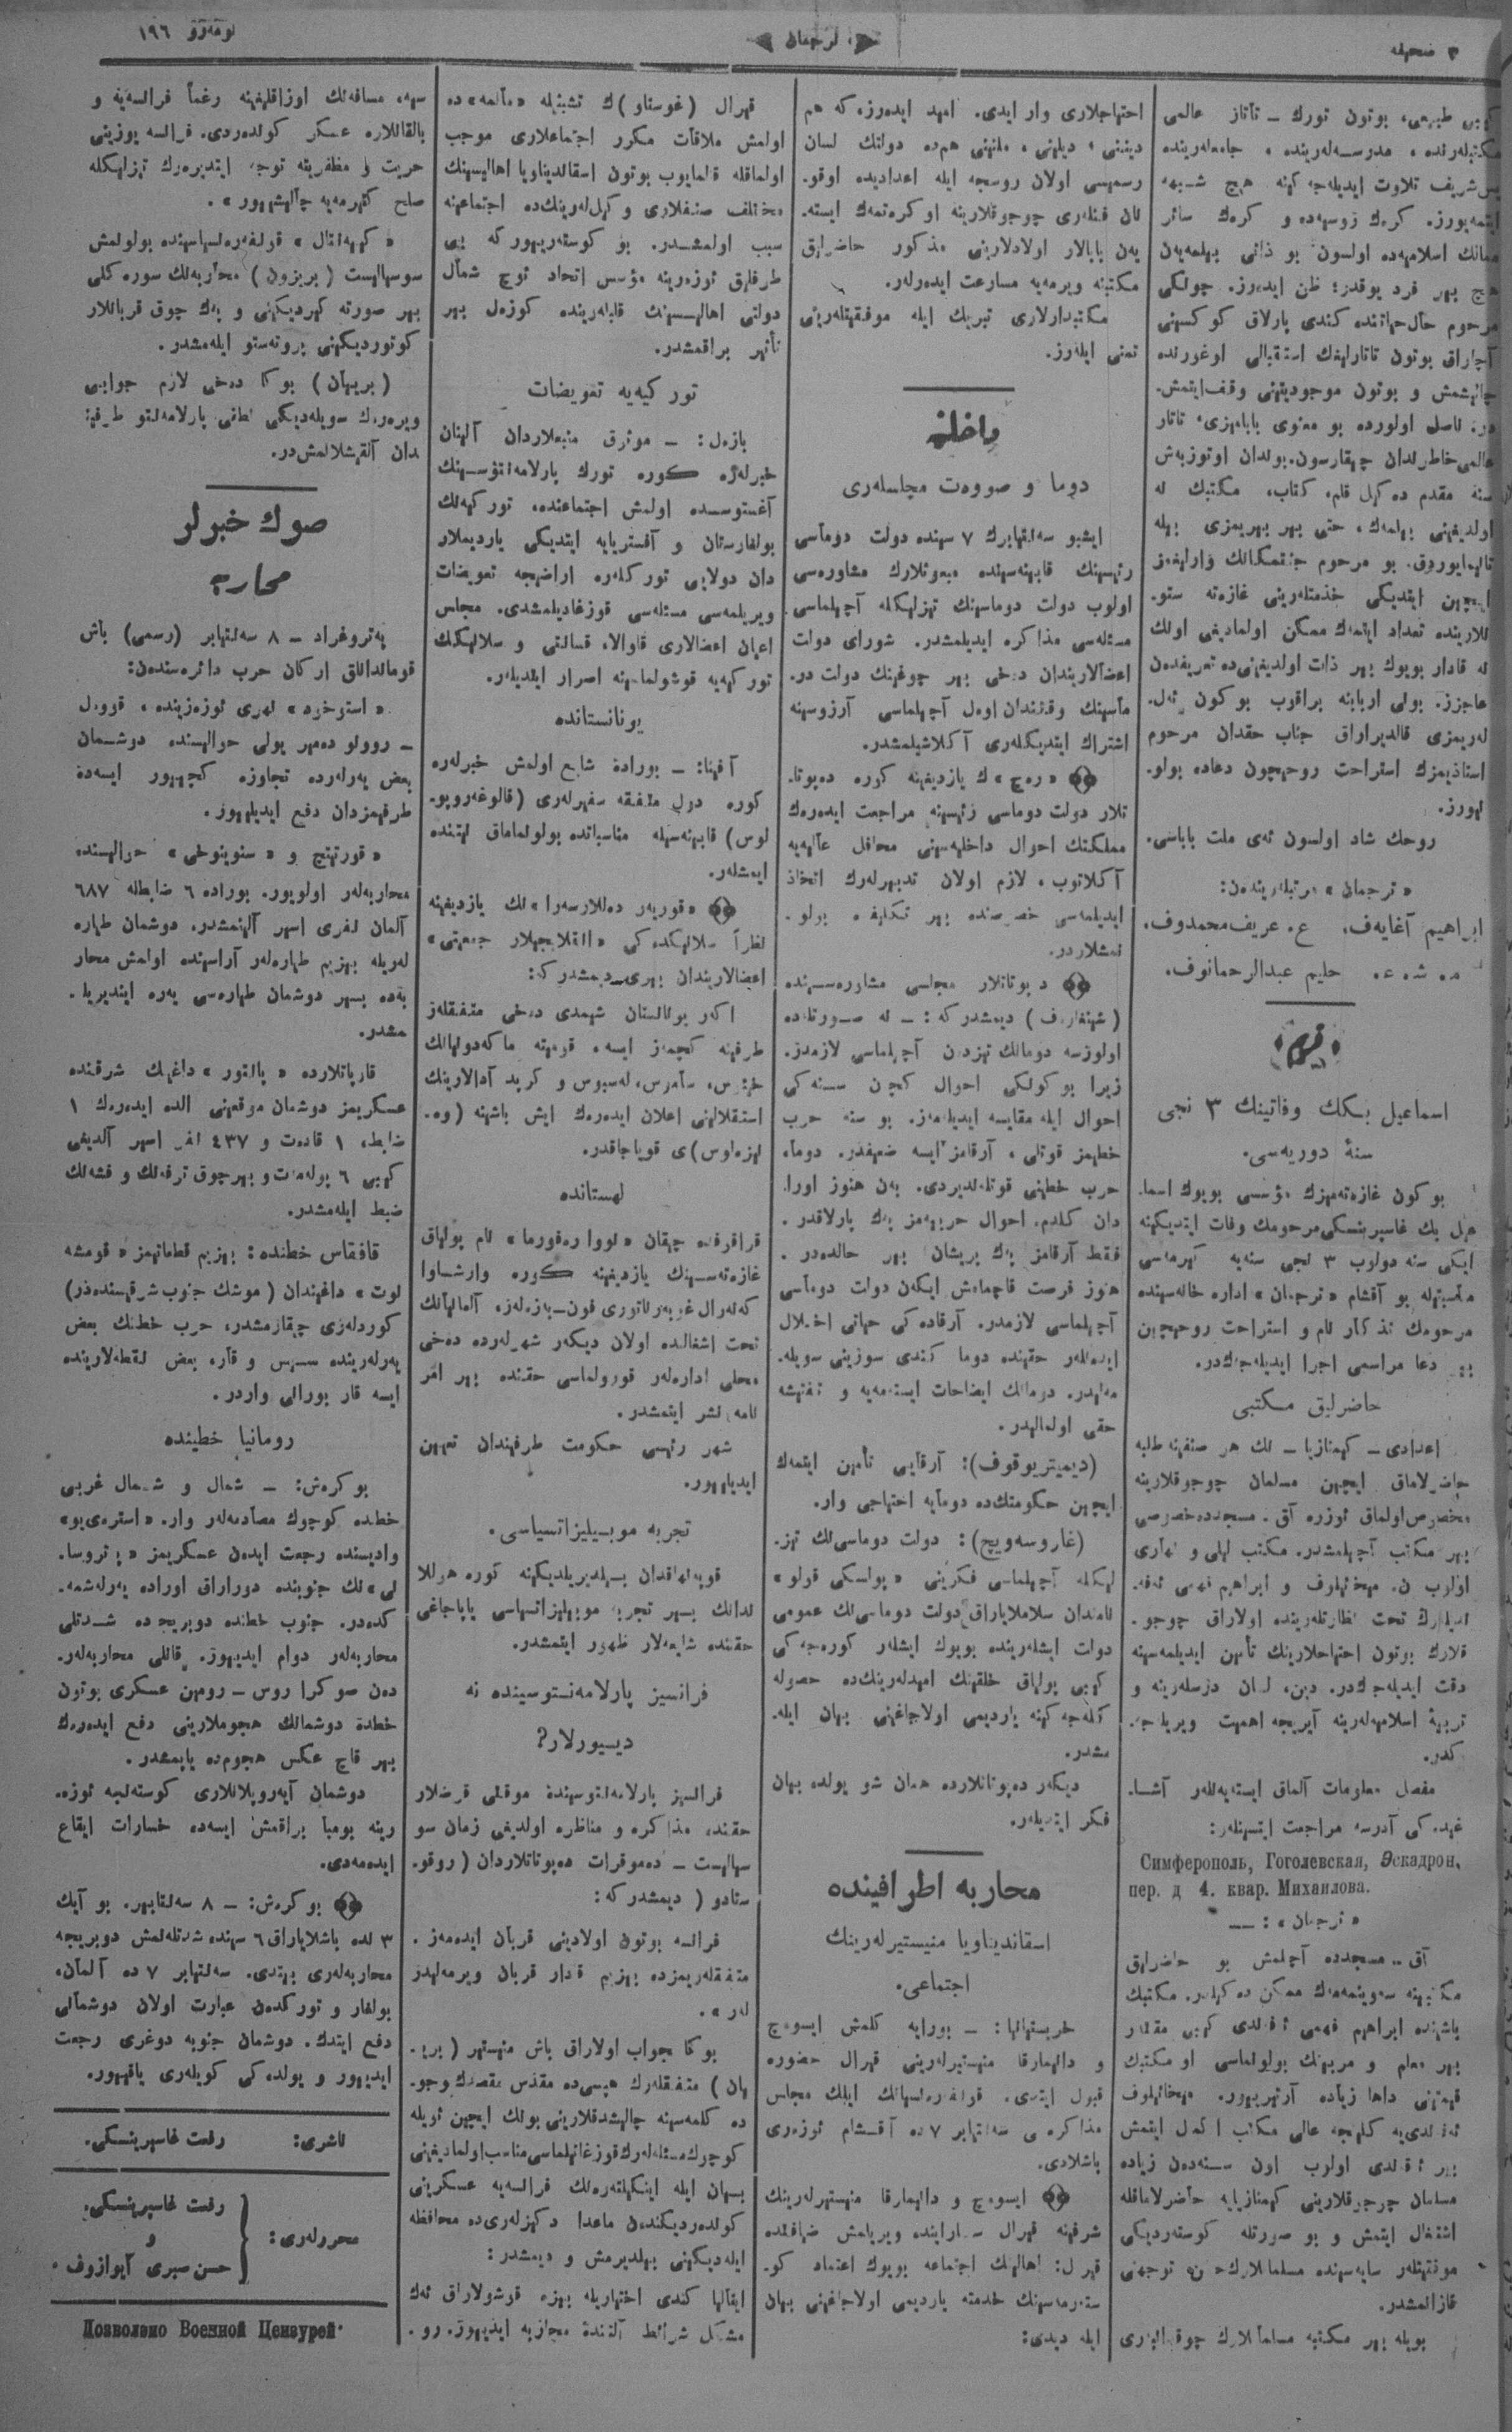 ٣ صحیفه
ترجمان
نومەرۆ ١٩٦
کبی طبیعی، بوتون تورك ـ تاتار عالمی
مکتبلەرنده ، مدرسەلەرینده ، جامعلەرینده
شریف تلاوت ایدیلەجەکینه هیچ شبهه
ایتمەیورز. کرەك روسیەده و کرەك سائر
اسلامیەده اولسون بو ذاتی بیلمەیەن
هیچ بیر فرد یوقدر؛ ظن ایدەرز. چونکی
مرحوم حال حیاتنده کندی پارلاق کوکسینی
آچاراق بوتون تاتارلیغڭ استقبالی اوغورنده
چالیشمش و بوتون موجودیتینی وقف ایتمش.
در. ناصل اولورده بو معنوی بابامیزی، تاتار
عالمی خاطرلدان چیقارسون. بوندان اوتوزبەش
سنه مقدم دەکیل قلم، کتاب، مکتبڭ نه
اولدیغینی بیلمەك، حتی بیر بیریمزی بیله
تانیمایوردق. بو مرحوم جنتمکانڭ وارلیغمز
ایچین ایتدیکی خذمتلەرینی غازەته ستو.
للارینده تعداد ایتمەك ممکن اولمادیغی اولڭ
نه قادار بویوك بیر ذات اولدیغینی ده تعریفدەن
عاجزز. بونی اربابنه براقوب بوکون ئەل.
لەریمزی قالدیراراق جناب حقدان مرحوم
استاذیمزڭ استراحت روحیچون دعاده بولو.
لیورز.
روحڭ شاد اولسون ئەی ملت باباسی.
« ترجمان » مرتبلەریندەن:
ابراهیم آغایەف، ع. عریف محمدوف،
م. ش. ع. حلیم عبدالرحمانوف.
قریم
اسماعیل بكڭ وفاتینڭ ٣ نجی
سنۀ دوریەسی.
بوکون غازەتەمیزڭ مؤسسی بویوك اسما.
عیل بك غاسپرینسکی مرحومڭ وفات ایتدیکینه
ایکی سنه دولوب ٣ نجی سنەیه کیرمەسی
مناسبتیله بو آقشام « ترجمان » اداره خانەسینده
مرحومڭ تذکار نام و استراحت روحیچین
بیر دعا مراسمی اجرا ایدیلەجەکدر.
حاضرلیق مکتبی
اعدادی ـ کیمنازیا ـ نڭ هر صنفینه طلبه
حاضرلاماق ایچین مسلمان چوجوقلارینه
مخصوص اولماق ئوزره آق ـ مسجدده خصوصی
بیر مکتب آچیلمشدر. مکتب لیلی و نهاری
اولوب ن. میخائیلوف و ابراهیم فهمی ئەفە.
ندیلرڭ تحت نظارتلەرینده اولاراق چوجو.
قلارڭ بوتون احتیاجلارینڭ تأمین ایدیلمەسینه
دقت ایدیلەجەکدر. دین، لسان درسلەرینه و
تربیۀ اسلامیەلەرینه آیریجه اهمیت ویریلەجە.
کدر.
مفصل معلومات آلماق ایستەیەنلەر آشا.
غیدەکی آدرسه مراجعت ایتسینلەر:
Симферополь, Гоголевская, Эскадрон.
пер. д 4. квар. Михаилова.
« ترجمان » : —
آق ـ مسجدده آچلمش بو حاضرلیق
مکتبینه سەوینمەمەك ممکن دەکیلدر. مکتبڭ
باشنده ابراهیم فهمی ئەفندی کبی مقتدر
بیر معلم و مربینڭ بولونماسی او مکتبڭ
قیمتینی داها زیاده آرتیریور. میخائیلوف
ئەفندی یه کلینجه عالی مکتب اکمال ایتمش
بیر ئەفندی اولوب اون سنەدەن زیاده
مسلمان چوجوقلارینی کیمنازیایه حاضرلاماقله
اشتغال ایتمش و بو صورتله کوستەردیکی
موفقیتلەر سایەسینده مسلمانلارڭ حسن توجهنی
قازانمشدر.
بویله بیر مکتبه مسلمانلارڭ چوق
احتیاجلاری وار ایدی. امید ایدەرز، که هم
دینینی ، دیلینی ، ملتینی هم ده دولتڭ لسان
رسمیسی اولان روسجه ایله اعدادیده اوقو.
نان فنلەری چوجوقلارینه اوکرەتمەك ایسته.
یەن بابالار اولادلارینی مذکور حاضرلیق
مکتبنه ویرمەیه مسارعت ایدەرلەر.
مکتبدارلاری تبریك ایله موفقیتلەرینی
تمنی ایلەرز.
داخلیه
دوما و صووەت مجلسلەری
ایشبو سەنتیابرڭ ٧ سینده دولت دوماسی
رئیسینڭ قابینەسینده مبعوثلارڭ مشاورەسی
اولوب دولت دوماسینڭ تیزلیکله آچیلماسی
مسئلەسی مذاکره ایدیلمشدر. شورای دولت
اعضالاریندان دخی بیر چوغینڭ دولت دو.
ماسینڭ وقتندان اول آچیلماسی آرزوسینه
اشتراك ایتدیکلەری آڭلاشیلمشدر.
« رەچ » ڭ یازدیغینه کوره دەپوتا.
تلار دولت دوماسی رئیسینه مراجعت ایدەرەك
مملکتڭ احوال داخلیەسینی محافل عالیەیه
آڭلاتوب ، لازم اولان تدبیرلەرڭ اتخاذ
ایدیلمەسی خصوصنده بیر تکلیفده بولو.
نمشلاردر.
دپوتاتلار مجلسی مشاورەسینده
(شینغاریوف) دیمشدر که: ـ نه صورتلەده
اولورسه دومانڭ تیزدن آچیلماسی لازمدر.
زیرا بوکونکی احوال کچن سنەکی
احوال ایله مقایسه ایدیلەمەز. بو سنه حرب
خطیمز قوتلی ، آرقامز ایسه ضعیفدر. دوما،
حرب خطینی قوتلەندیردی. بەن هنوز اورا.
دان کلدم. احوال حربیەمز پك پارلاقدر.
فقط آرقامز پك پریشان بیر حالدەدر.
هنوز فرصت قاچمامش ایکەن دولت دوماسی
آچیلماسی لازمدر. آرقادەکی حیاتی اخلال
ایدەنلەر حقینده دوما کندی سوزینی سویله.
مەلیدر. دومانڭ ایضاحات ایستەمەیه و تفتیشه
حقی اولمالیدر.
(دیمیتریوقوف): آرقایی تأمین ایتمەك
ایچین حکومتڭ ده دومایه احتیاجی وار.
(غاروسەویچ): دولت دوماسی نڭ تیز.
لیکله آچیلماسی فکرینی « پولسکی قولو »
نامندان سلاملایاراق دولت دوماسی نڭ عمومی
دولت ایشلەرینده بویوك ایشلەر کورەجەکی
کبی پولیاق خلقینڭ امیدلەرینڭ ده حصوله
کلەجەکینه یاردیمی اولاجاغینی بیان ایله.
مشدر.
دیکەر دەپوتاتلارده همان شو یولده بیان
فکر ایتدیلەر.
محاربه اطرافینده
اسقاندیناویا منیستیرلەرینڭ
اجتماعی.
خریستیانیا: ـ بورایه کلمش ایسوەچ
و دانیمارقا منیستیرلەرینی قیرال حضوره
قبول ایتدی. قونفەرەنسیانڭ ایلڭ مجلس
مذاکرەسی سەنتیابر ٧ ده آقشام ئوزەری
باشلادی.
ایسوەچ و دانیمارقا منیستیرلەرینڭ
شرفینه قیرال سارایندە ویریلمش ضیافتده
قیرال: اهالینڭ اجتماعه بویوك اعتماد کو.
ستەرمەسینڭ خدمته یاردیمی اولاجاغینی بیان
ایله دیدی:
قیرال (غوستاو)ڭ تشبثیله « مالمه » ده
اولمش ملاقات مکرر اجتماعلاری موجب
اولماقله قالمایوب بوتون اسقاندیناویا اهالیسینڭ
مختلف صنفلاری وکیل لەرینڭ ده اجتماعینه
سبب اولمشدر. بو کوستەریور که بی
طرفلیق ئوزەرینه مؤسس اتحاد ئوچ شمال
دولتی اهالیسینڭ قلبلەرینده کوزەل بیر
تأثیر براقمشدر.
تورکیەیه تعویضات
بازەل: ـ موثوق منبعلاردان آلینان
خبرلەرە کوره تورك پارلامەنتوسینڭ
آغستوسده اولمش اجتماعنده، تورکیەنڭ
بولغارستان و آفستریایه ایتدیکی یاردیملار
دان دولایی تورکلەره اراضیجه تعویضات
ویریلمەسی مسئلەسی قوزغادیلمشدی. مجلس
اعیان اعضالاری قاوالا، قسانتی و سلانیکڭ
تورکیەیه قوشولماسینه اصرار ایتدیلەر.
یونانستانده
آفینا: ـ بوراده شایع اولمش خبرلەره
کوره دول متفقه سفیرلەری (قالوغەروپو.
لوس) قابینەسیله مناسباتده بولونماماق نیتنده
ایمشلەر.
« قوریەر دەللارسەرا » نڭ یازدیغینه
نظراً سلانیکدەکی « انقلابجیلار جمعیتی »
اعضالاریندان بیری دیمشدر که:
اکەر یونانستان شیمدی دخی متفقلەر
طرفینه کچمەز ایسه ، قومیته ماکەدونیانڭ
خیوس، سامس، لەسبوس و کرید آدالارینڭ
استقلالینی اعلان ایدەرەك ایش باشینه (وە.
نیزەلوس) ی قویاجاقدر.
لهستانده
قراقوفده چیقان « نووا رەفورما » نام پولیاق
غازەتەسینڭ یازدیغینه کوره وارشاوا
کەنەرال غوبەرناتوری فون ـ بەزەلەر، آلمانیانڭ
تحت اشغالنده اولان دیکەر شهرلەرده دخی
محلی ادارەلەر قورولماسی حقنده بیر امر
نامه نشر ایتمشدر.
شهر رئیسی حکومت طرفیندان تعیین
ایدیلیور.
تجربه موبیلیزاتسیاسی.
قوپەنهاقدان بیلدیریلدیکینه کوره هوللا
ندانڭ بیر تجربه موبیلیزاتسیاسی یاپاجاغی
حقنده شایعەلار ظهور ایتمشدر.
فرانسیز پارلامەنتوسینده نه
دیییورلار؟
فرانسیز پارلامەنتوسینده موقتی قرضلار
حقنده مذاکره و مناظره اولدیغی زمان سو
سیالیست ـ دەموقرات دەپوتاتلاردان (روقو.
ستادو) دیمشدر که:
فرانسه بوتون اولادینی قربان ایدەمەز.
متفقلەریمزده بیزیم قدار قربان ویرمەلیدر
لەر ».
بوکا جواب اولاراق باش منیستیر (بریـ.
یان) متفقلەرڭ هپسی ده مقدس مقصدڭ وجو.
ده کلمەسینه چالیشدقلارینی بونڭ ایچین ئویله
کوچوك مسئلەلەرڭ قوزغانیلماسی مناسب اولمادیغینی
بیان ایله اینکیلتەرەنڭ فرانسەیه عسکرینی
کوندەردیکندەن ماعدا دکیزلەری ده محافظه
ایلەدیکینی بیلدیرمش و دیمشدر:
ایتالیا کندی اختیاریله بیزه قوشولاراق ئەڭ
مشکل شرائط آلتنده محاربه ایدیور. رو.
سیه، مسافەنڭ اوزاقلیغینه رغماً فرانسەیه و
بالقانلاره عسکر کوندەردی. فرانسه یوزینی
حریت و مظفریته توجه ایتدیرەرك تیزلیکله
صلح کتیرمەیه چالیشیور ».
« کیەنتال » قونفەرەنسیاسینده بولونمش
سوسیالیست (بریزون) محاربەنڭ سورەکلی
بیر صورته کیردیکینی و پك چوق قربانلار
کوتوردیکینی پروتەستو ایلەمشدر.
(بریان) بوکا دخی لازم جوابی
ویرەرك سویلەدیکی نطقی پارلامەنتو طرفیـ
ندان آلقیشلانمشدر.
صوڭ خبرلر
محاربه
پەتروغراد ـ ٨ سەنتیابر (رسمی) باش
قوماندانلق ارکان حرب دائرەسندەن:
« استوخود » نهری ئوزەرینده ، قوول
ـ روونو دەمیر یولی حوالیسنده دوشمان
بعض یەرلەرده تجاوزه کچیور ایسەده
طرفیمزدان دفع ایدیلیور.
« قورتنیچ و « سنوینوخی » حوالیسنده
محاربەلەر اولویور. بوراده ٦ ضابطله ٦٨٧
آلمان نفری اسیر آلینمشدر. دوشمان طیاره
لەریله بیزیم طیارەلەر آراسینده اولمش محار
بەده بیر دوشمان طیارەسی یەره ایندیریلـ.
مشدر.
قارپاتلارده « پانتور » داغینڭ شرقنده
عسکریمز دوشمان موقعینی الده ایدەرەك ١
ضابط، ١ قادەت و ٤٣٧ نفر اسیر آلدیغی
کبی ٦ پولەمیوت و بیر چوق توفەنك و فشەنك
ضبط ایلەمشدر.
قافقاس خطنده : بیزیم قطعاتیمز « قومشه
لوت » داغیندان (موشڭ جنوب شرقیسندەدر)
کوردلەری چیقارمشدر، حرب خطنڭ بعض
یەرلەرینده سیس و قار، بعض نقطەلارینده
ایسه قار بورانی واردر.
رومانیا خطینده
بوکرەش: ـ شمال و شمال غربی
خطده کوچوك مصادمەلەر وار. « استرەی یو »
وادیسنده رجعت ایدەن عسکریمز « پتروسا.
نی » نڭ جنوبنده دوراراق اوراده یەرلەشمە.
کدەدر. جنوب خطنده دوبریجەده شدتلی
محاربەلەر دوام ایدیور. قانلی محاربەلەر.
دەن صوکرا روس ـ رومین عسکری بوتون
خطده دوشمانڭ هجوملارینی دفع ایدەرەك
بیر قاچ عکس هجوم ده یاپمشدر.
دوشمان آیەروپلانلاری کوستەنجه ئوزە.
رینه بومبا براقمش ایسەده خسارات ایقاع
ایدەمەدی.
بوکرەش: ـ ٨ سەنتیابر. بو آیڭ
٣ نده باشلایاراق ٦ سینده شدتلەنمش دوبریجه
محاربەلەری بیتدی. سەنتیابر ٧ ده آلمان،
بولغار و تورکدەن عبارت اولان دوشمانی
دفع ایتدك. دوشمان جنوبه دوغری رجعت
ایدیور و یولدەکی کویلەری یاقیور.
ناشری: رفعت غاسپرینسکی.
محررلەری: رفعت غاسپرینسکی.
و
حسن صبری آیوازوف.
Дозволено Военной Цензурой.